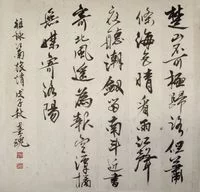 楚山不可極歸路但蕭
條海色晴看雨江聲
夜聽潮劍留南斗近書
寄北風遙為報空潭橘
無媒寄洛
祖詠 旅情 戊子秋